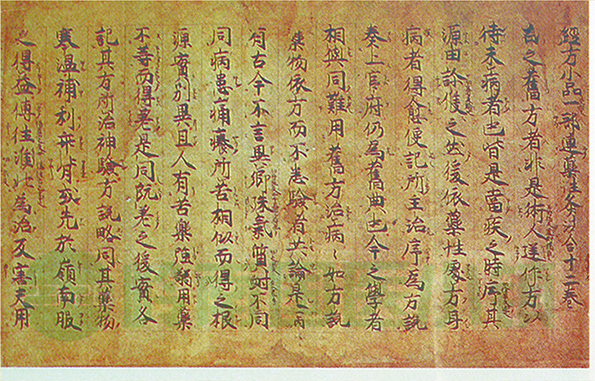 經方小品一部連藥性灸法合十二卷
古之舊方者非是術人逆作方以
待未病者也皆是當疾之時序其
源由診候之然後依藥性處方耳
病者得愈便記所主治序為方說
奏上官府仍為舊典也今之學者
相與同難用舊方治病〻如方說
藥物依方而不悉驗者其論是
古今不言異鄉殊氣質耳不同
同病患痛所苦相似而得之根
源實別異且人有苦樂強弱用藥
不等而得差是同既差之後實各
記其方所治神驗方說略同其藥物
寒溫補利弃背或先於嶺南服
之得益傳往淮北為治反害夭用